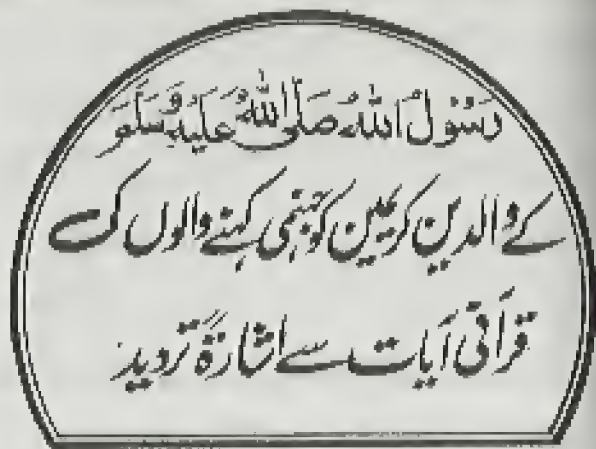 رَسُوْلُ اللہُ صَلَّی اللہُ عَلَیْہِ وَسَلَّمَ
کے والدین کریمین کو جہنمی کہنے والوں کی
قرآنی آیات سے اشارۃً تردید